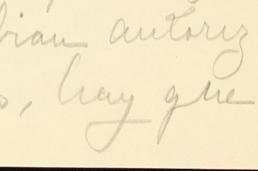 bian autoriz
s, hay que